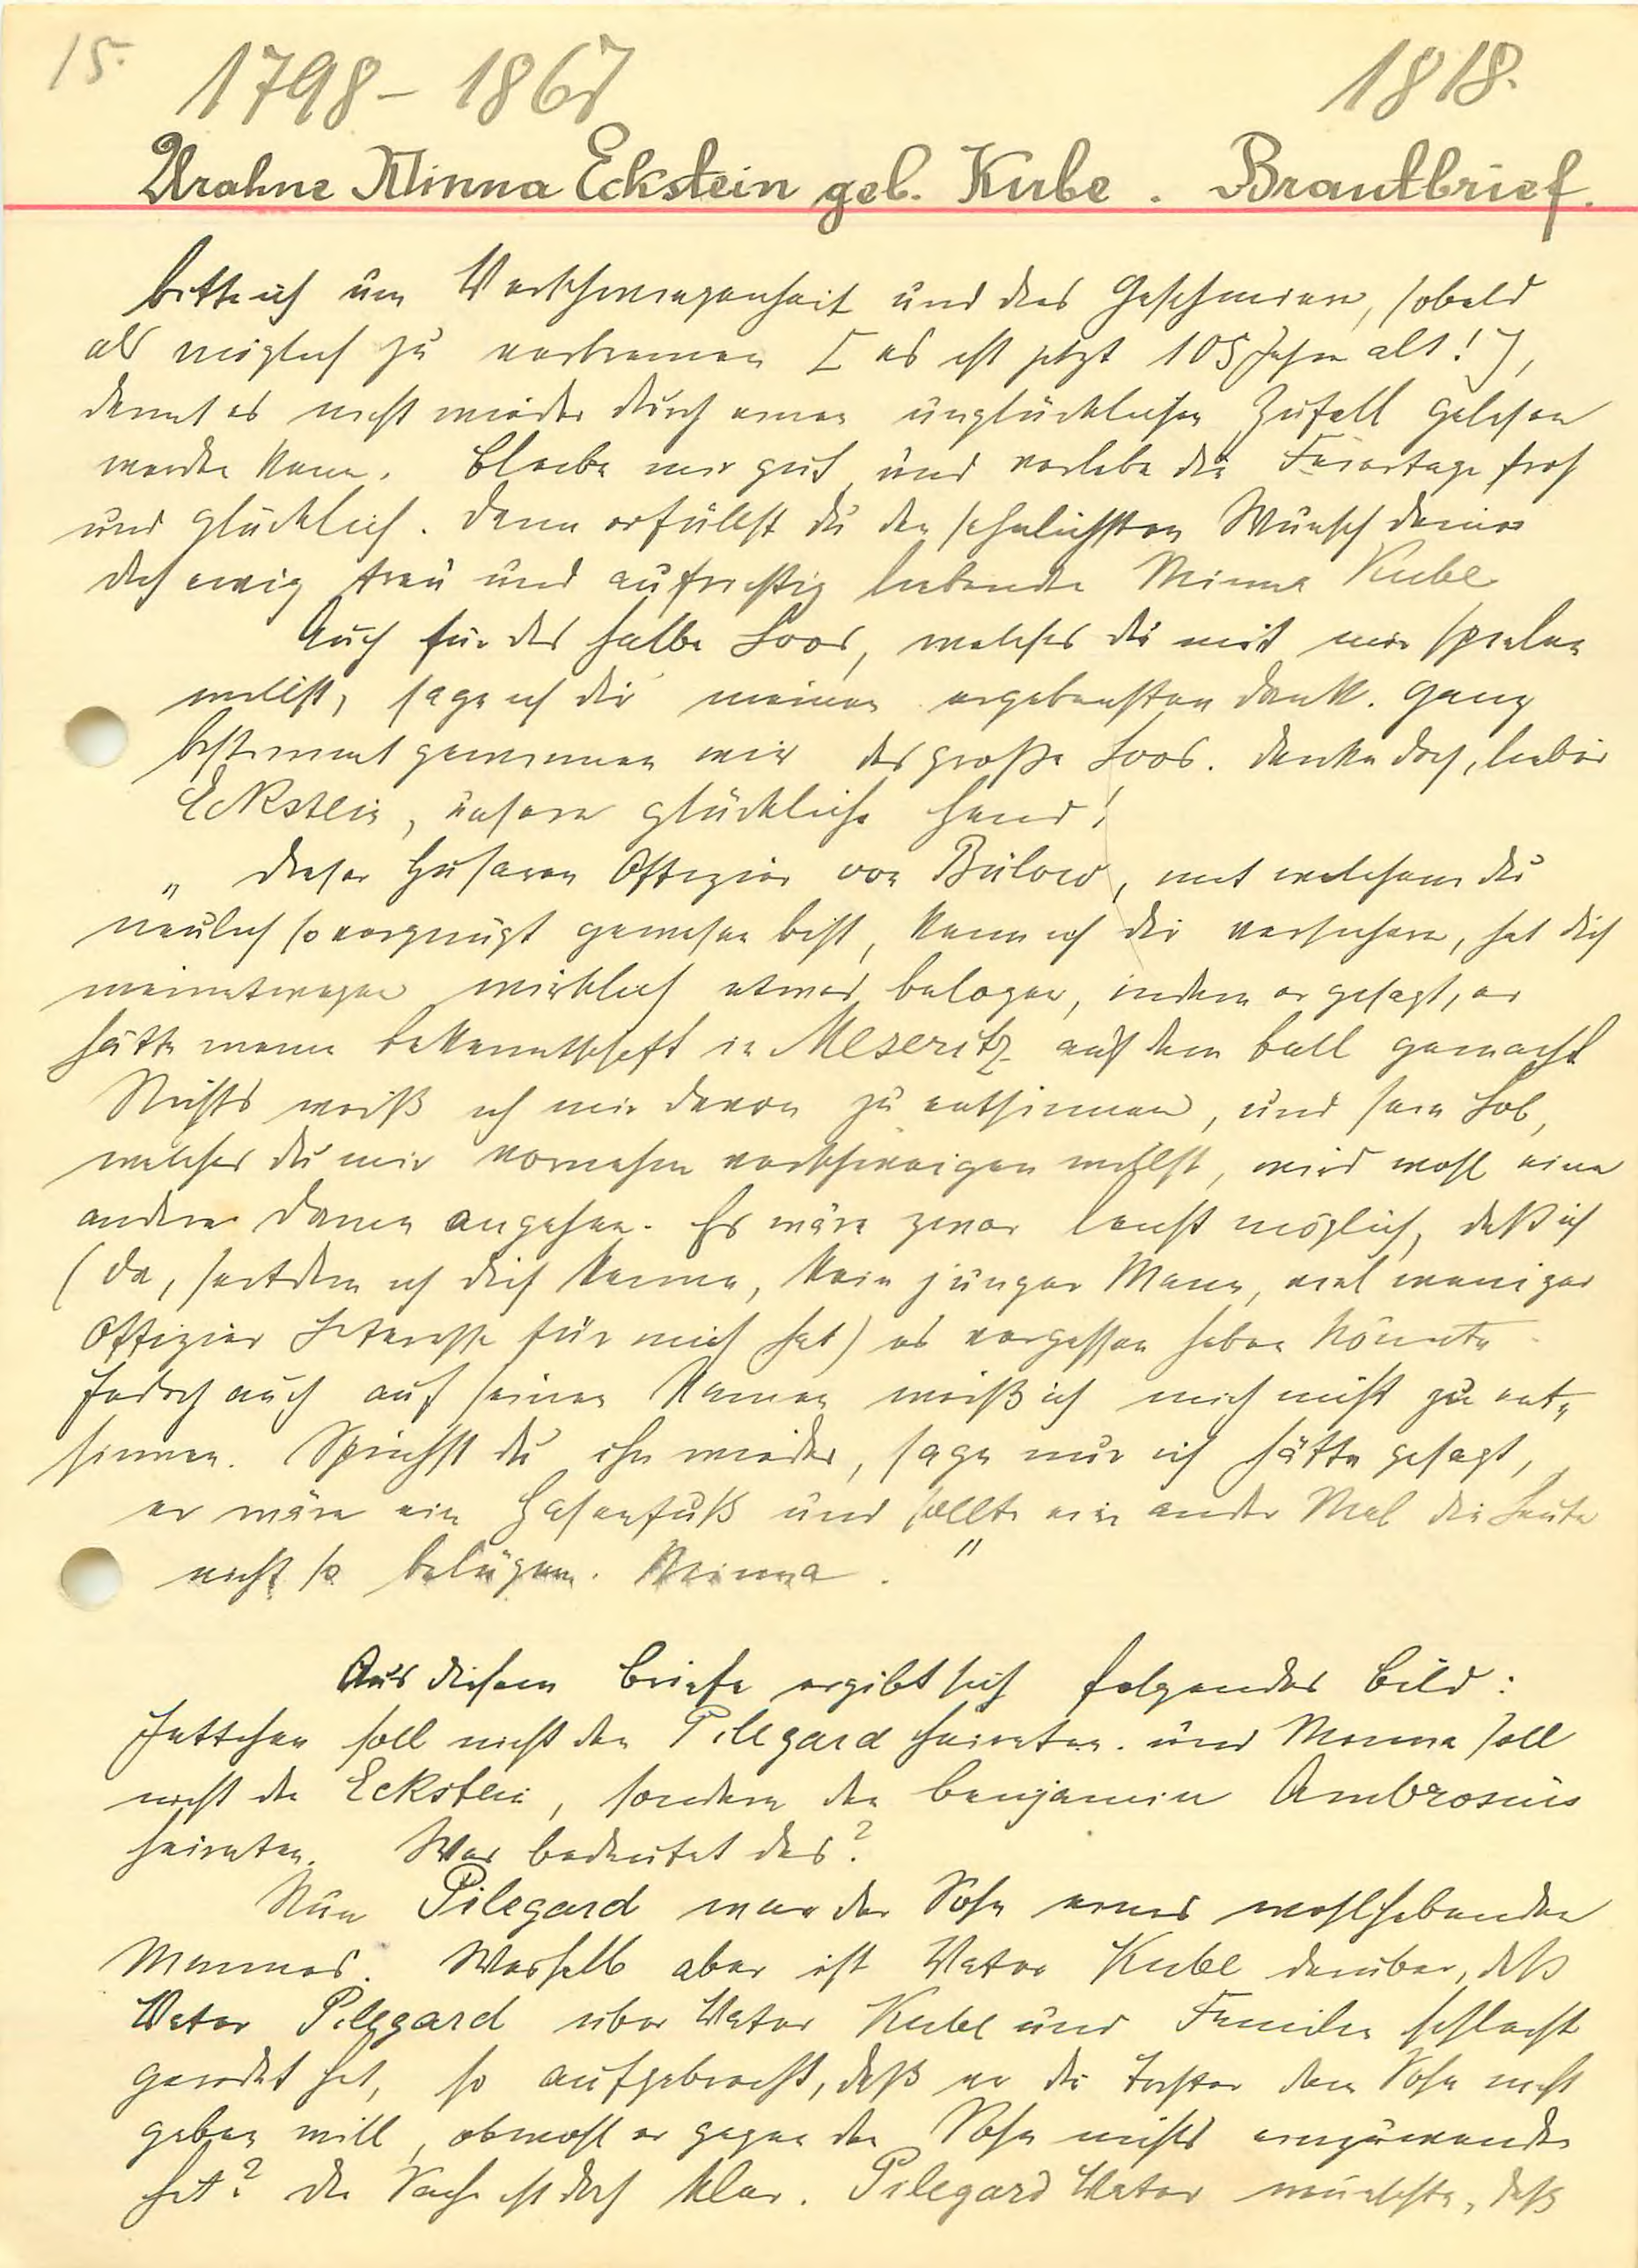 15.
1798 – 1867 1818.
Urahne Minna Eckstein geb. Kube. Brautbrief.
bitte ich um Verschwiegenheit und das Geschmiere, sobald
als möglich zu verbrennen [es ist jetzt 105 Jahre alt!],
damit es nicht wieder durch einen unglücklichen Zufall gelesen
werden kann. Bleibe mir gut und verlebe die Feiertage froh
und glücklich. Dann erfüllst du den sehnlichsten Wunsch deiner
dich ewig treu und aufrichtig liebenden Minna Kube
Auch für das halbe Loos, welches du mit mir spielen
willst, sage ich dir meinen ergebensten Dank. Ganz
bestimmt gewinnen wir das große Loos. Denke doch, lieber
Eckstein, unsere glückliche Hand!
„Dieser Husaren Offizier von Bülow, mit welchem du
neulich so vergnügt gewesen bist, kann ich dir versichern, hat dich
meinetwegen wirklich etwas belogen, indem er gesagt, er
hätte meine Bekanntschaft in Meseritz auf dem Ball gemacht
Nichts weiß ich mir davon zu entsinnen, und sein Lob,
welches du mir vornehm verschweigen willst, wird wohl eine
andere Dame angehen. Es wäre zwar leicht möglich, daß ich
(da, seitdem ich dich kenne, kein junger Mann, viel weniger
Offizier Interesse für mich hat) es vergessen haben könnte
Jedoch auch auf seinen Namen weiß ich mich nicht zu ent-
sinnen. Sprichst du ihn wieder, sage nur ich hätte gesagt,
er wäre ein Hasenfuß und sollte ein ander Mal die Leute
nicht so belügen. Minna."
Aus diesem Briefe ergibt sich folgendes Bild:
Jettchen soll nicht den Pilegard heiraten. und Minna soll
nicht den Eckstein, sondern den Benjamin Ambrosius
heiraten. Was bedeutet das?
Nun Pilegard war der Sohn eines wohlhabenden
Mannes. Weshalb aber ist Vater Kube darüber, daß
Vater Pilegard über Vater Kube und Familie schlecht
geredet hat, so aufgebracht, daß er die Tochter dem Sohn nicht
geben will, obwohl er gegen den Sohn nichts einzuwenden
hat? Die Sache ist doch klar. Pilegard Vater wünschte, daß